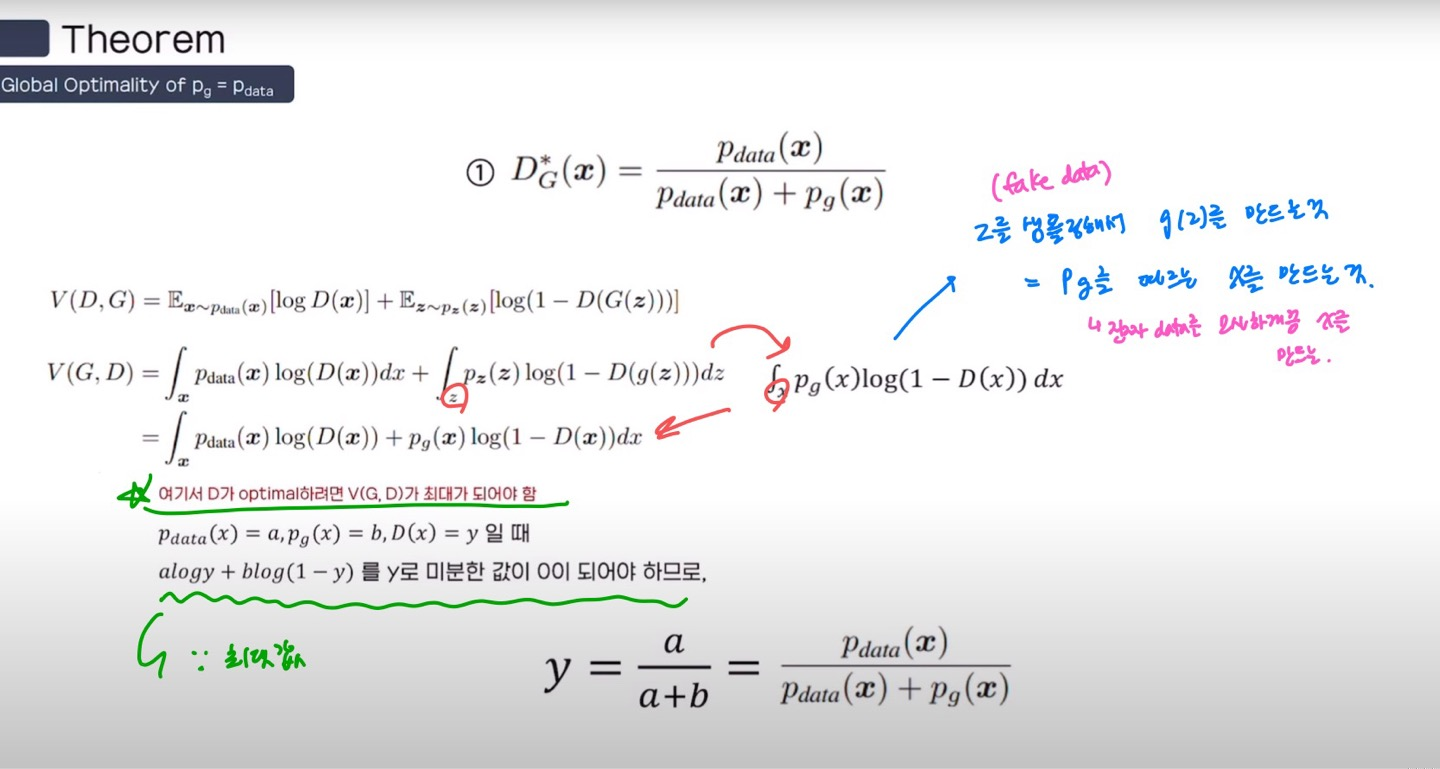 Theorem
Global Optimality of p_g = p_data
① D*_G(x) = p_data(x) / (p_data(x) + p_g(x))
(fake data)
z를 샘플링해서 g(z)를 만드는 것
= Pg를 따르는 x를 만드는 것.
↳ 진짜 data를 모사하게끔 x를
만드는.
V(D, G) = 𝔼_{x∼p_data(x)}[log D(x)] + 𝔼_{z∼p_z(z)}[log(1 − D(G(z)))]
V(G, D) = ∫_x p_data(x) log(D(x))dx + ∫_z p_z(z) log(1 − D(g(z)))dz ∫_x p_g(x)log(1 − D(x)) dx
= ∫_x p_data(x) log(D(x)) + p_g(x) log(1 − D(x))dx
☆ 여기서 D가 optimal하려면 V(G, D)가 최대가 되어야 함
p_data(x) = a, p_g(x) = b, D(x) = y 일 때
alogy + blog(1 − y) 를 y로 미분한 값이 0이 되어야 하므로,
∵ 최댓값
y = a / (a+b) = p_data(x) / (p_data(x) + p_g(x))